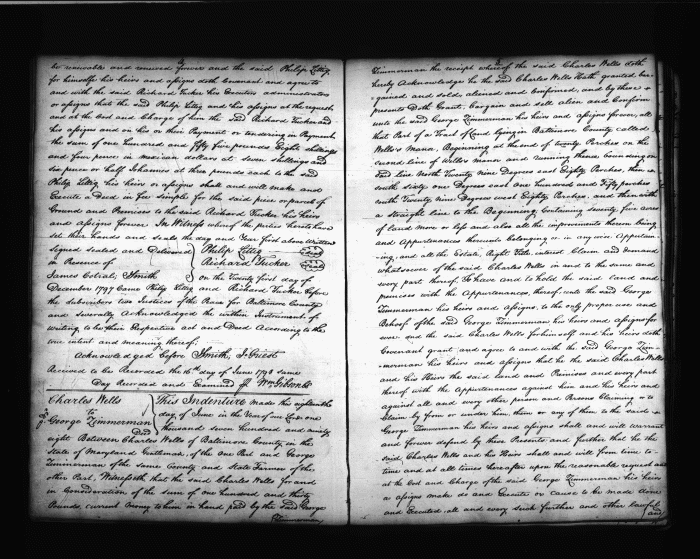 be renewable and renewed forever and the said Philip Littig
for himself his heirs and assigns doth Covenant and agree to
and with the said Richard Tucker his Executors administrators
or assigns that the said Philip Littig and his assigns at the request
and at the Cost and Charge of him the said Richard Tucker and
his assigns and on his or their Payment or tendering in Payment
the sum of one hundred and fifty five pounds Eight shillings
and four pence in mexican dollars at seven shillings and
six pence or half Johannes at three pounds each to the said
Philip Littig his heirs or assigns shall and will make and
Execute a Deed in Fee Simple for the said piece or parcel of
Ground and Premises to the said Richard Tucker his heirs
and assigns forever. In Witness whereof the parties hereto have
set their hands and seals the day and Year first above Written
Signed Sealed and Delivered Philip Littig Seal
in Presence of Richard Tucker Seal
James Smith On the Twenty first day of
December 1797 Came Philip Littig and Richard Tucker before
the subscribers two Justices of the Peace for Baltimore County
and severally Acknowledged the within Instrument of
Writing to be their Respective act and Deed According to the
true intent and meaning thereof.
Acknowledged before Smith,
Received to be Recorded the 16th day of June 1798 same
Day Recorded and Examined Wm Gibbons
Charles Wells
to
George Zimmerman
Deed
This Indenture made this eighteenth
day of June in the Year of our Lord one
thousand seven hundred and ninety
eight Between Charles Wells of Baltimore County in the
State of Maryland Gentleman, of the one Part and George
Zimmerman of the same County and State Farmer of the
other Part, Witnesseth that the said Charles Wells for and
in Consideration of the sum of one hundred and thirty
Pounds, current money to him in hand paid by the said George
Zimmerman
Zimmerman the receipt whereof the said Charles Wells doth
hereby Acknowledge he the said Charles Wells Hath granted bar
gained and sold, aliened and confirmed, and by these
presents Doth Grant, Bargain and sell alien and Confirm
unto the said George Zimmerman his heirs and assigns forever, all
that Part of a Tract of Land lying in Baltimore County called
Wells's Manor, Beginning at the end of twenty Perches on the
second line of Wells's manor and running thence bounding on
said line North Twenty Nine Degrees east Eighty Perches, then
south sixty one Degrees east One hundred and Fifty perches
south Twenty Nine Degrees west Eighty Perches, and then with
a straight line to the Beginning, Containing seventy five acres
of land more or less and also all the improvements thereon being
and Appurtenances thereunto belonging or in any wise Appertain
ing, and all the Estate, Right Title, interest Claim and demand
whatsoever of the said Charles Wells in and to the same and
every part thereof. To have and to hold the said land and
premises with the Appurtenances, thereof, unto the said George
Zimmerman his heirs and assigns, to the only proper use and
Behoof of the said George Zimmerman his heirs and assigns for
ever and the said Charles Wells for himself and his heirs doth
Covenant grant and agree to and with the said George Zim
merman his heirs and assigns that he the said Charles Wells
and his Heirs the said Land and Premises and every part
thereof with the Appurtenances against him and his heirs and
against all and every other person and Persons Claiming or to
claim by from or under him, them or any of them to the said
George Zimmerman his heirs and assigns shall and will warrant
and forever defend by these Presents and further that he the
said Charles Wells and his Heirs shall and will from time to
time and at all times hereafter upon the reasonable request and
at the Cost and Charge of the said George Zimmerman his heirs
or assigns make do and Execute or cause to be made done
and Executed, all and every such further and other lawful
and